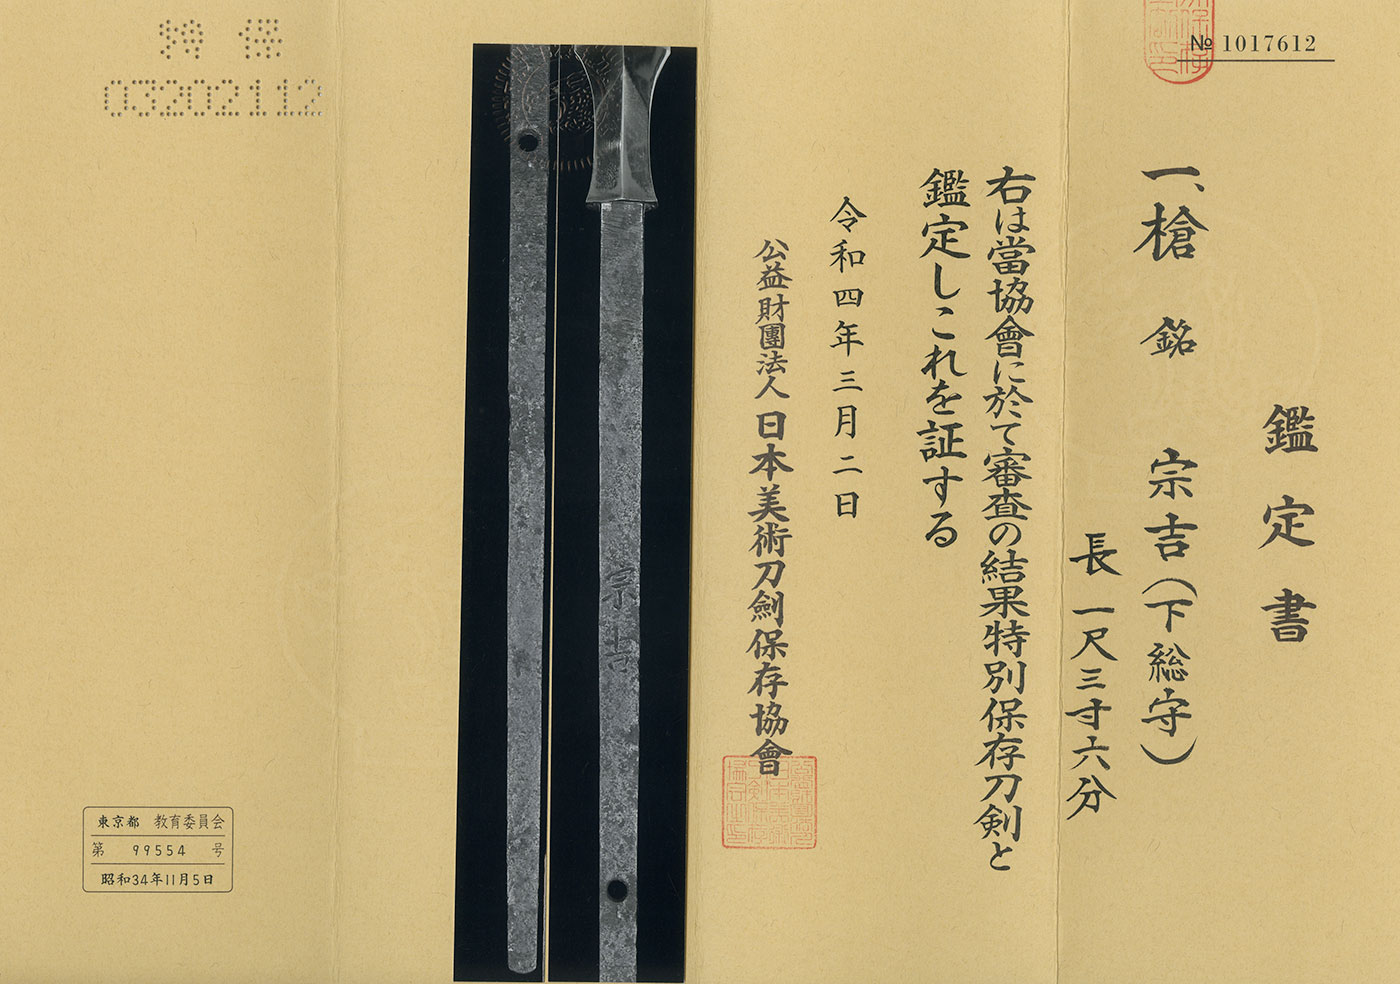 № 1017612
鑑定書
一、槍 銘 宗吉(下総守)
長 一尺三寸六分
右は當協會に於て審査の結果特別保存刀剣と
鑑定しこれを証する
令和四年三月二日
公益財團法人 日本美術刀劍保存協會
宗吉
特保
03202112
東京都 教育委員会
第 99554 号
昭和34年11月5日